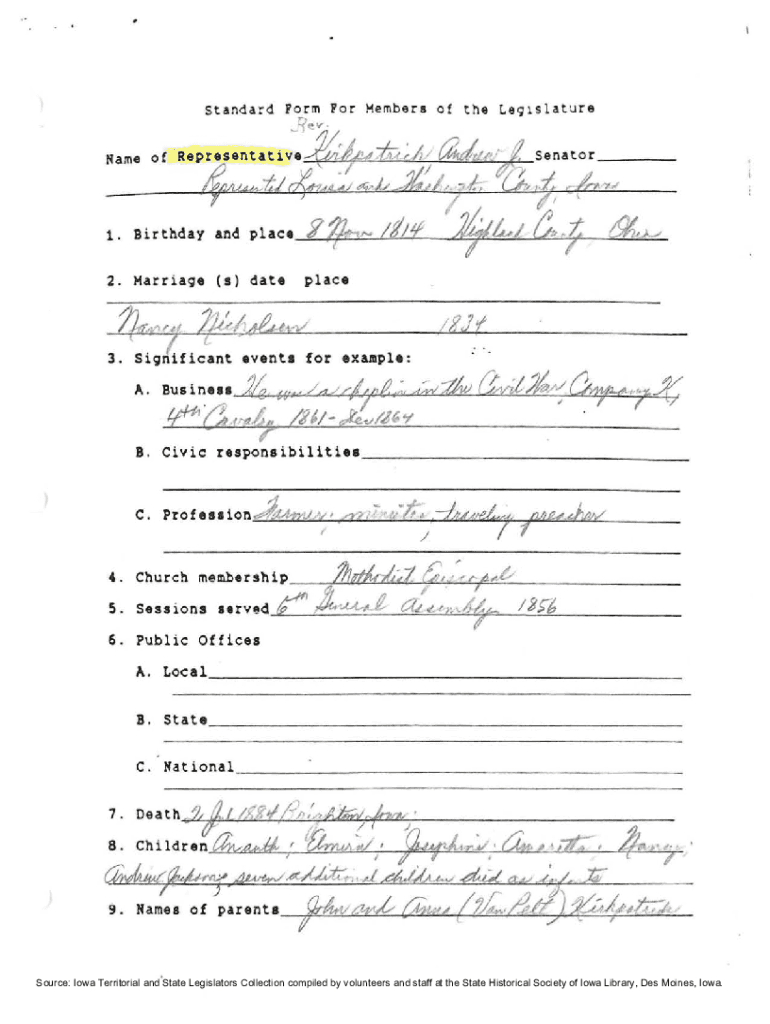 Standard Form For Members of the Legislature
Rev.
Name of Representative Kirkpatrick, Andrew J. Senator
Represented Louisa and Washington County, Iowa
1. Birthday and place 8 Nov 1814 Highland County, Ohio
2. Marriage (s) date place
Nancy Nicholson 1834
3. Significant events for example:
A. Business He was a chaplin in the Civil War, Company K,
4th Cavalry 1861-Dec 1864
B. Civic responsibilities
C. Profession Farmer; minister, traveling preacher
4. Church membership Methodist Episcopal
5. Sessions served 6th General Assembly 1856
6. Public Offices
A. Local
B. State
C. National
7. Death 2 Jul 1884 Brighton, Iowa
8. Children Elmira; Josephine; Amaretta; Nancy;
Andrew Jackson; seven additional children died as infants
9. Names of parents John and Anna (Van Pelt) Kirkpatrick
Source: Iowa Territorial and State Legislators Collection compiled by volunteers and staff at the State Historical Society of Iowa Library, Des Moines, Iowa.